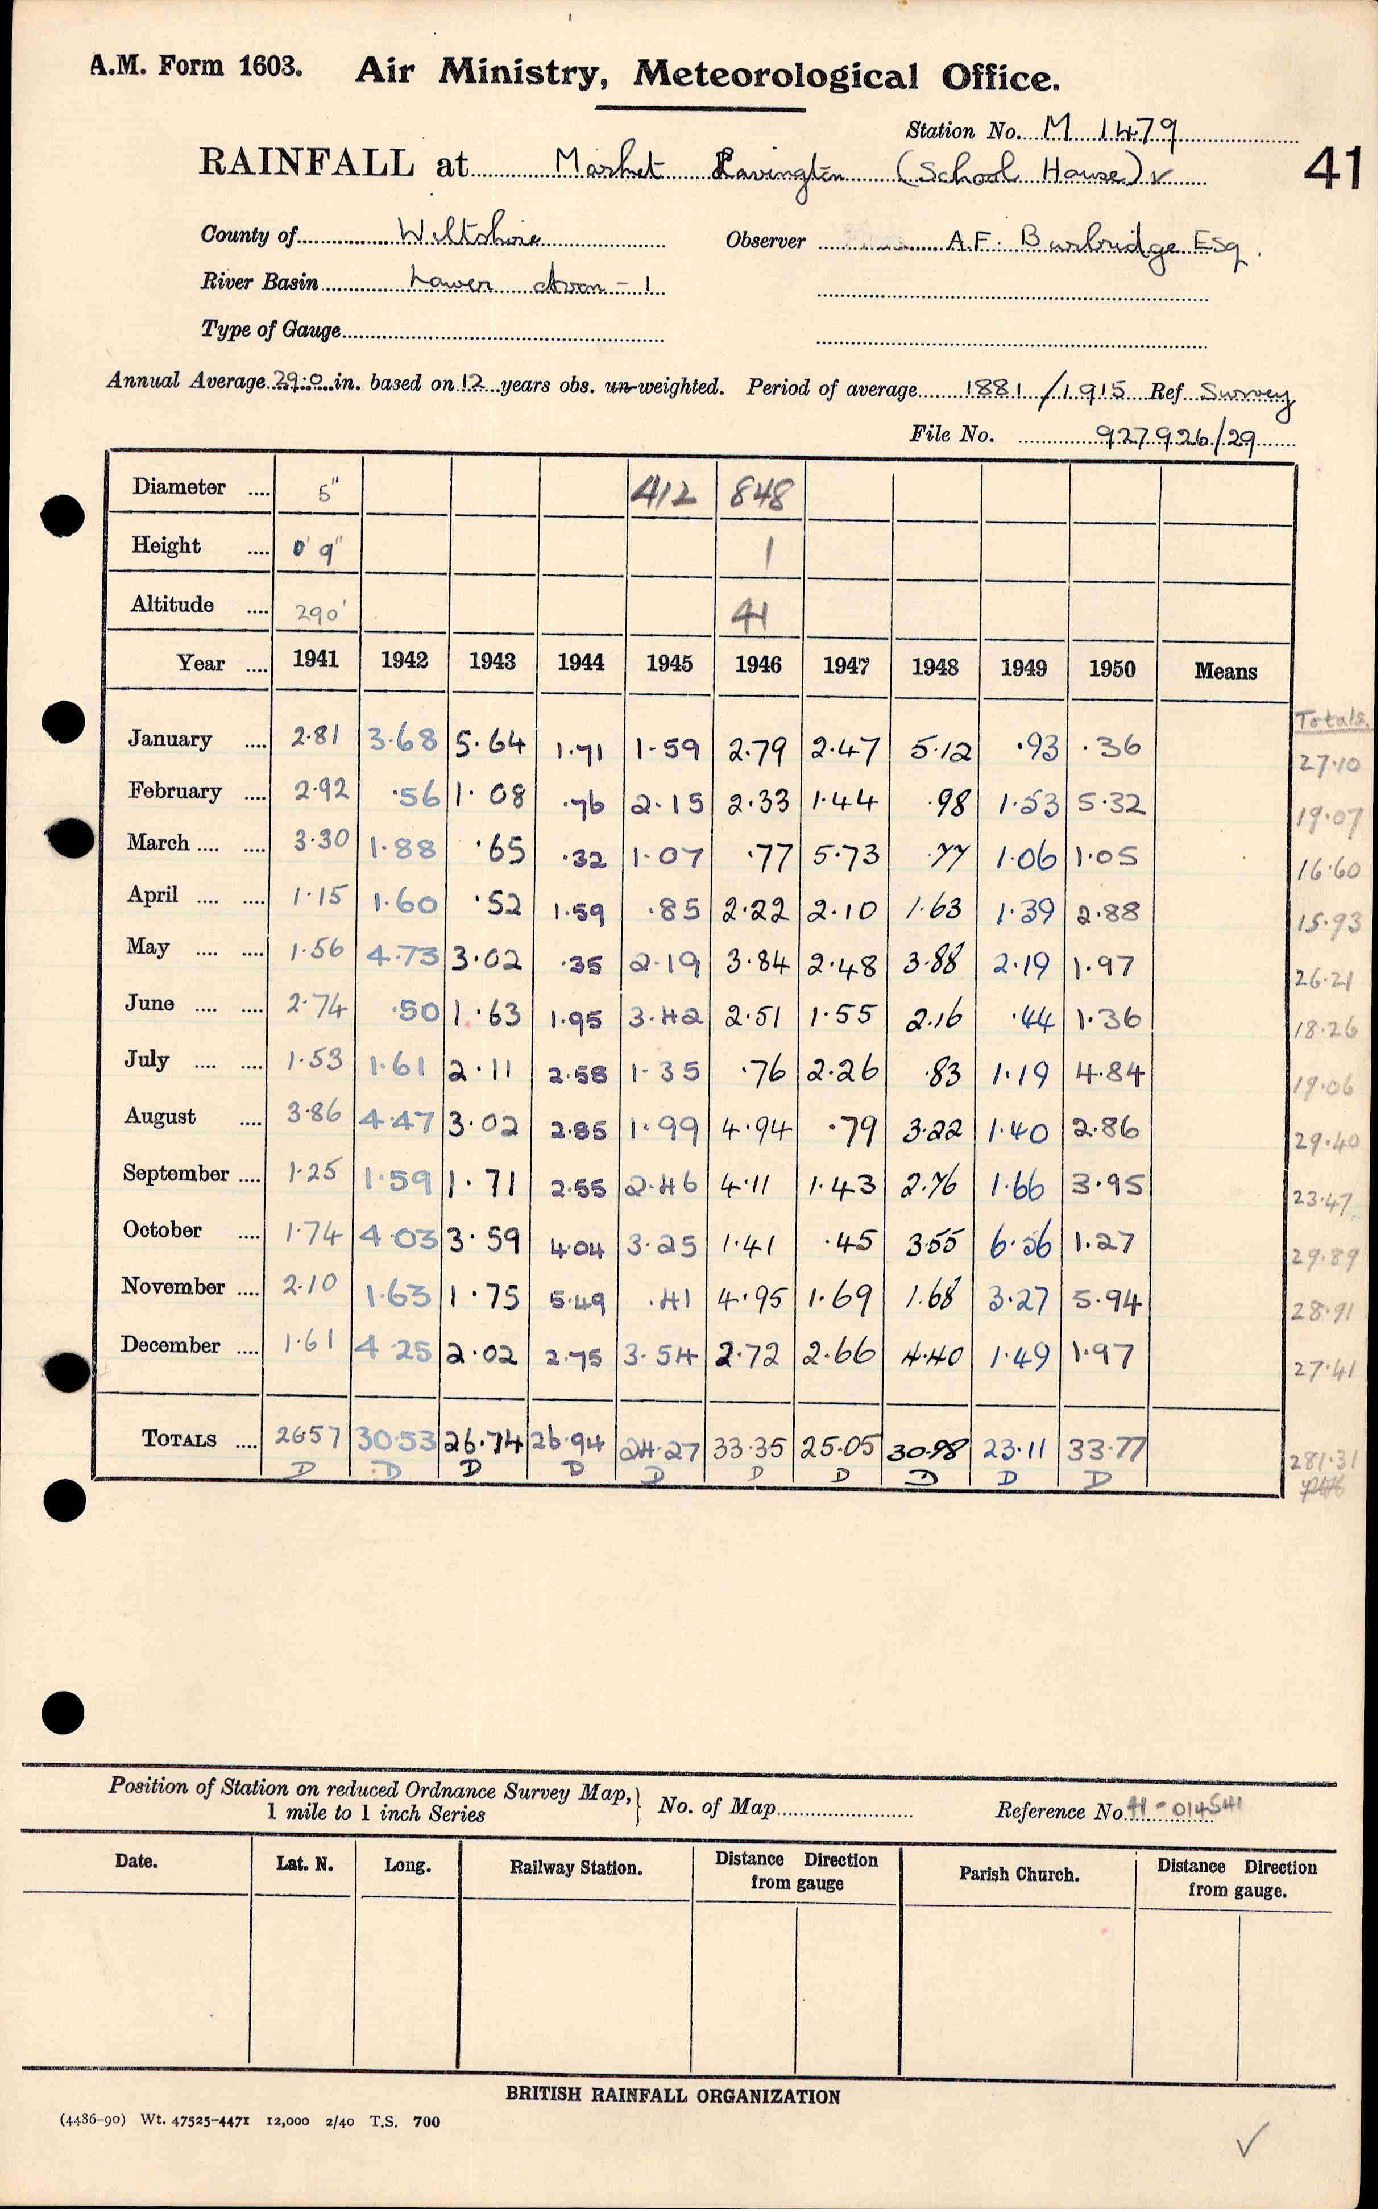 A.M. Form 1603. Air Ministry, Meteorological Office.
Station No. M 1479
RAINFALL at Market Lavington (School House) ✓ 41
County of Wiltshire Observer A.F. Burbridge Esq.
River Basin Lower Avon - 1
Type of Gauge
Annual Average 29.0 in. based on 12 years obs. un-weighted. Period of average 1881/1915 Ref Survey
File No. 927926/29
Diameter .... 5" 412 848
Height .... 0' 9" 1
Altitude .... 290' 41
Year .... 1941 1942 1943 1944 1945 1946 1947 1948 1949 1950 Means
Totals.
January .... 2.81 3.68 5.64 1.71 1.59 2.79 2.47 5.12 .93 .36 27.10
February .... 2.92 .56 1.08 .76 2.15 2.33 1.44 .98 1.53 5.32 19.07
March .... .... 3.30 1.88 .65 .32 1.07 .77 5.73 .77 1.06 1.05 16.60
April .... .... 1.15 1.60 .52 1.59 .85 2.22 2.10 1.63 1.39 2.88 15.93
May .... .... 1.56 4.73 3.02 .35 2.19 3.84 2.48 3.88 2.19 1.97 26.21
June .... .... 2.74 .50 1.63 1.95 3.42 2.51 1.55 2.16 .44 1.36 18.26
July .... .... 1.53 1.61 2.11 2.58 1.35 .76 2.26 .83 1.19 4.84 19.06
August .... 3.86 4.47 3.02 2.85 1.99 4.94 .79 3.22 1.40 2.86 29.40
September .... 1.25 1.59 1.71 2.55 2.46 4.11 1.43 2.76 1.66 3.95 23.47
October .... 1.74 4.03 3.59 4.04 3.25 1.41 .45 3.55 6.56 1.27 29.89
November .... 2.10 1.63 1.75 5.49 .41 4.95 1.69 1.68 3.27 5.94 28.91
December .... 1.61 4.25 2.02 2.75 3.54 2.72 2.66 4.40 1.49 1.97 27.41
TOTALS .... 26.57 30.53 26.74 26.94 24.27 33.35 25.05 30.98 23.11 33.77 281.31
D D D D D D D D D D
Position of Station on reduced Ordnance Survey Map,
1 mile to 1 inch Series } No. of Map Reference No. 41-014541
Date. Lat. N. Long. Railway Station. Distance Direction from gauge Parish Church. Distance Direction from gauge.
BRITISH RAINFALL ORGANIZATION
(4486-90) Wt. 47525-4471 12,000 2/40 T.S. 700
✓